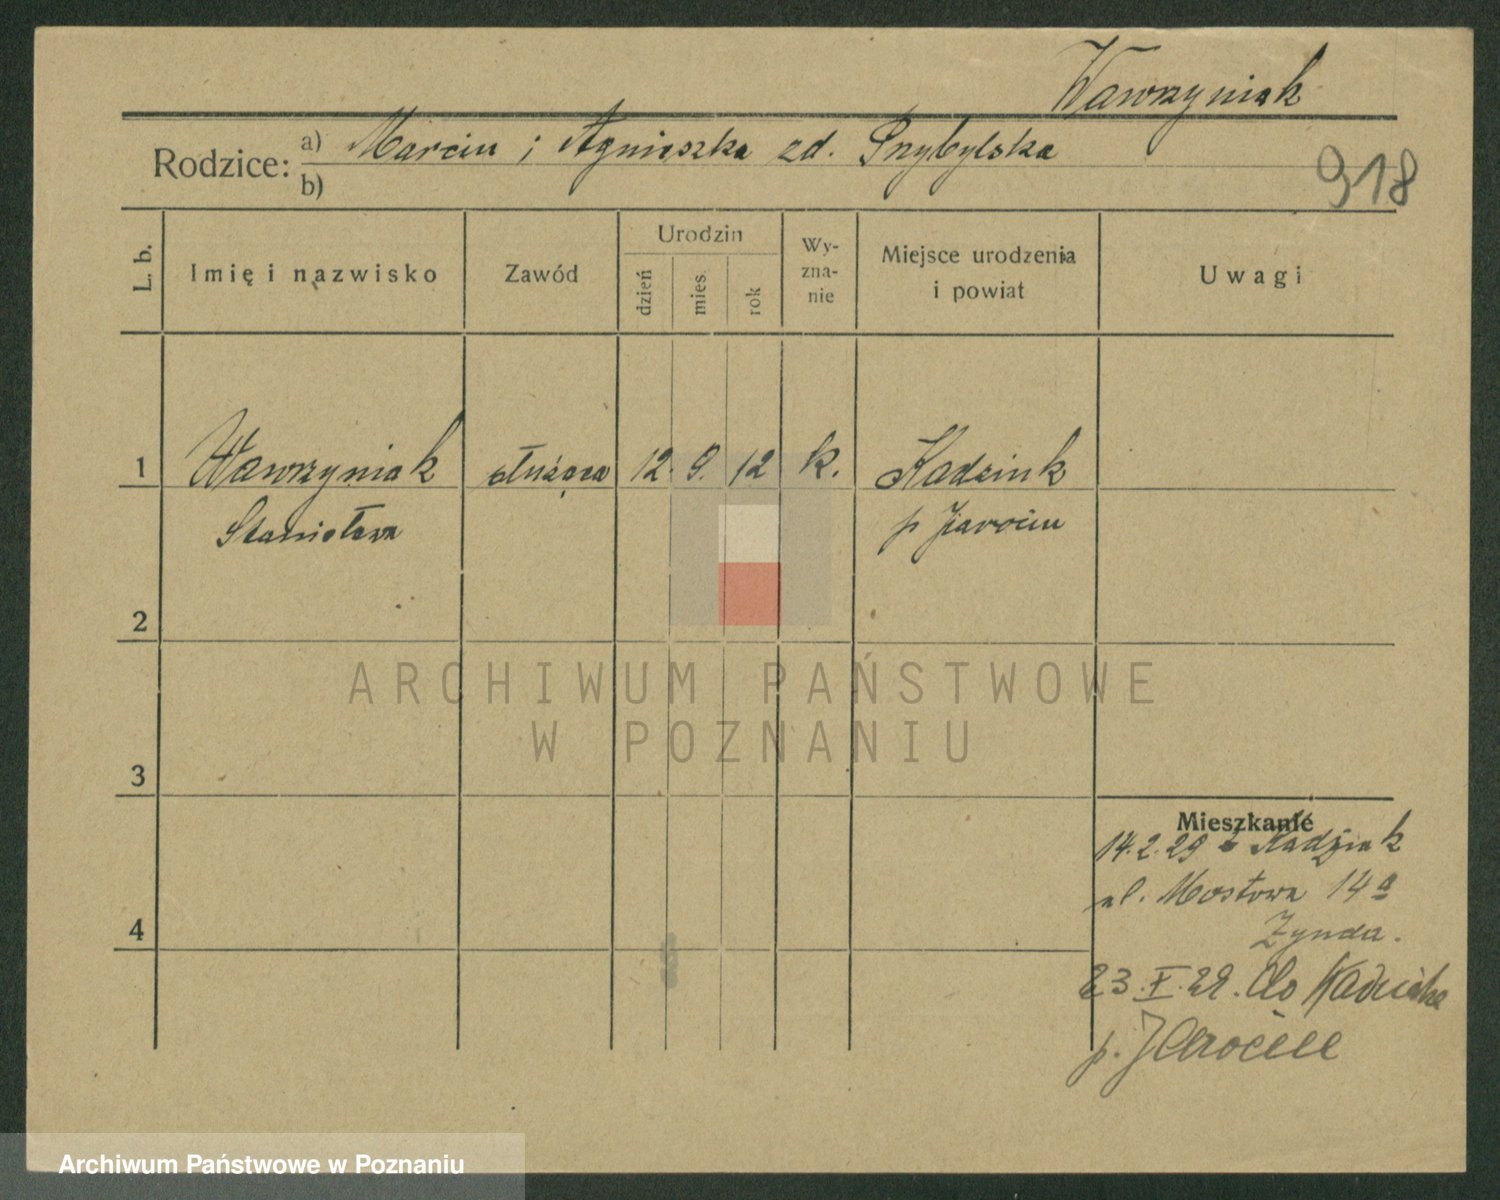 Wawrzyniak
Rodzice: a) Marcin i Agnieszka zd. Przybylska
b)
918
L. b. Imię i nazwisko Zawód Urodzin dzień mies. rok Wyznanie Miejsce urodzenia i powiat Uwagi
1 Wawrzyniak służąca 12. 9. 12 k. Kadziak
Stanisława p Jarocin
2
3
4
Mieszkanie
14.2.29 z Kadziak
ul. Mostowa 14a
Zynda.
23.X.29. do Kadziaka
p. Jarocin
ARCHIWUM PAŃSTWOWE
W POZNANIU
Archiwum Państwowe w Poznaniu